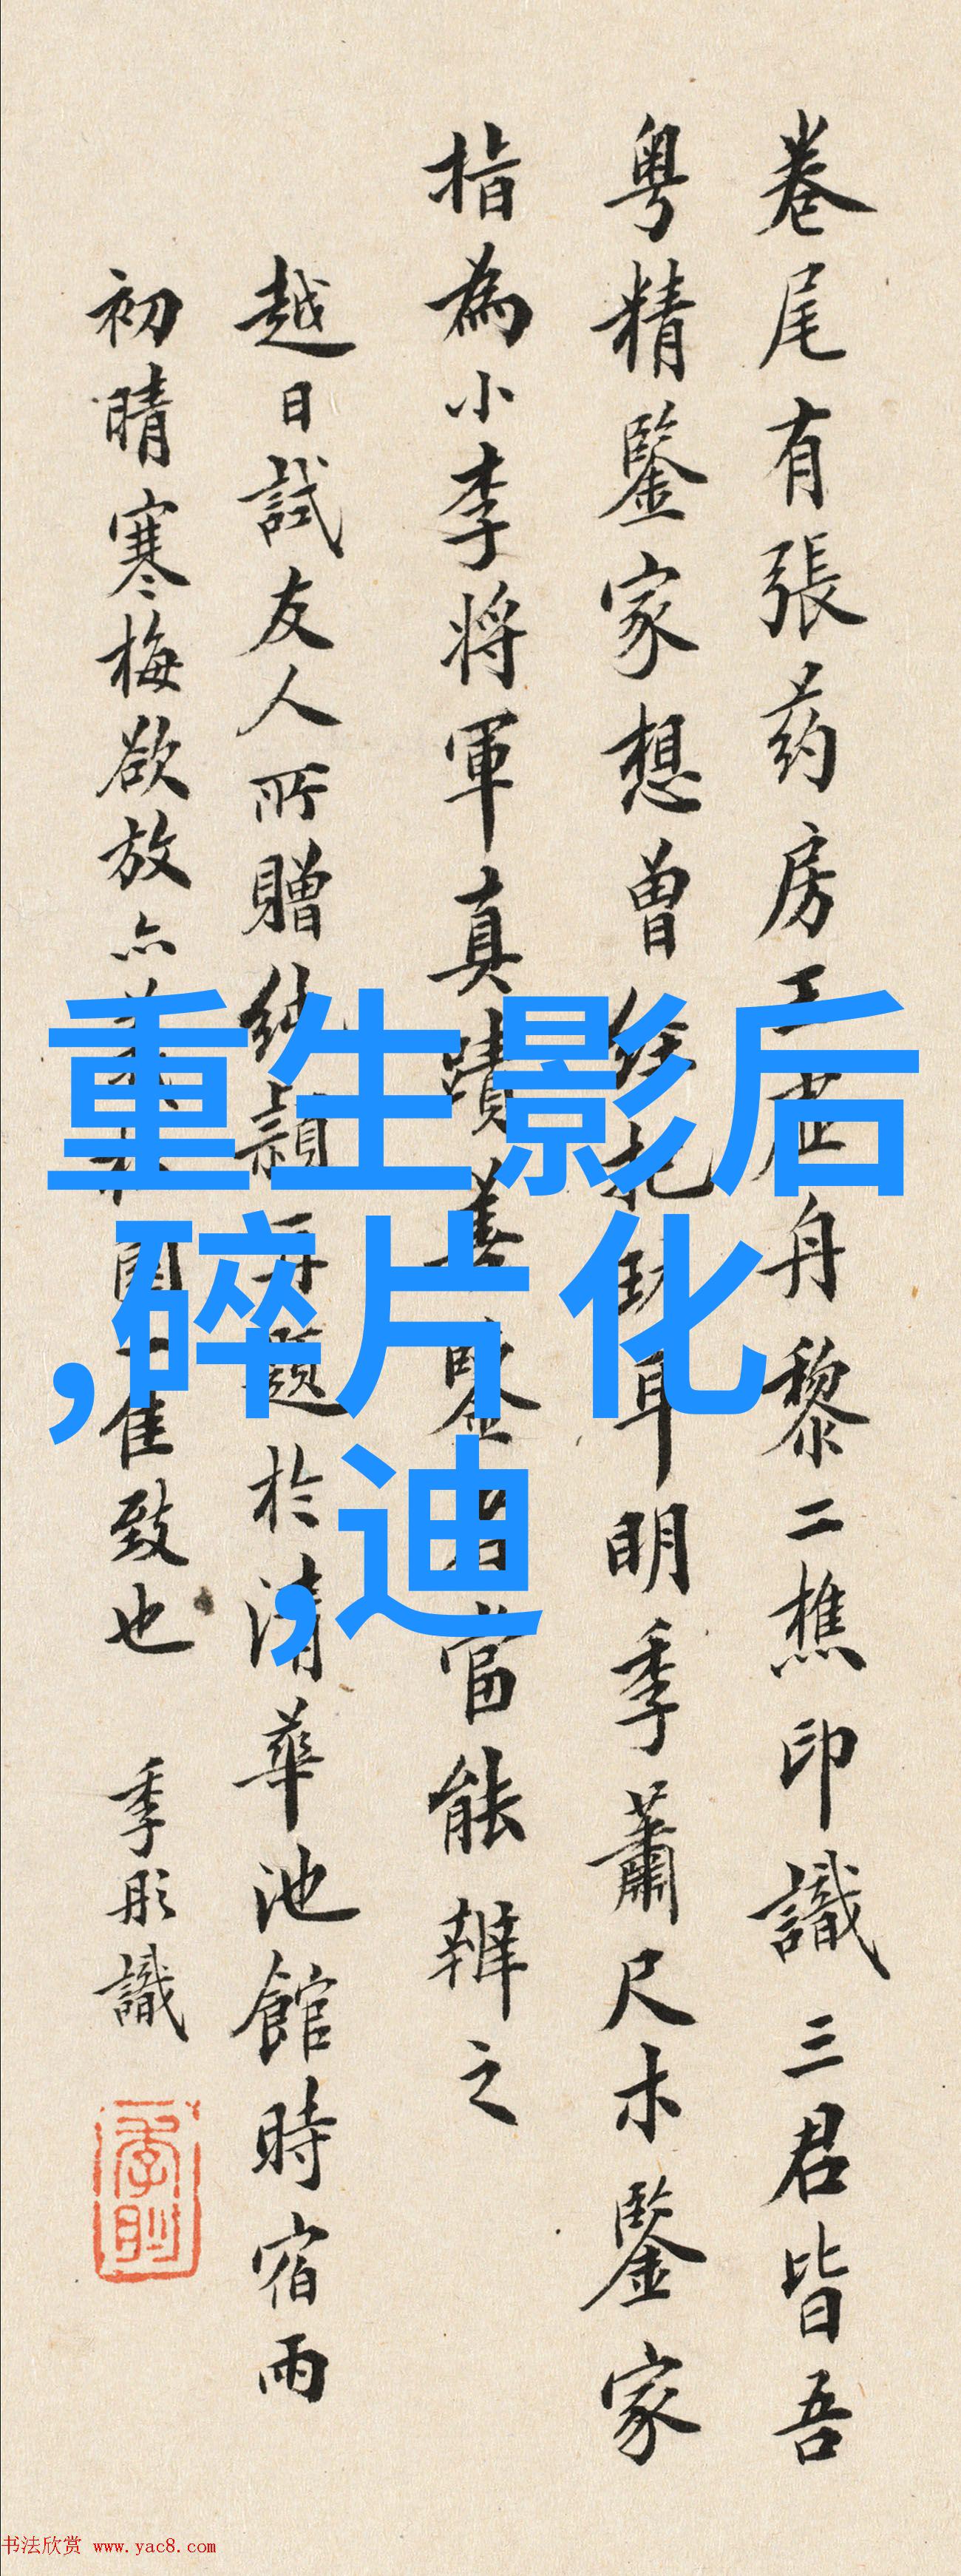 卷尾有張药房王舟黎二樵印識三君皆吾
粤精鑒家想曾經耳明季蕭尺木鑒家
指為小李将軍真蹟善鑒者當能辨之
越日試友人所贈純穎再題於清華池館時宿雨
初晴寒梅欲放亦園一佳致也 季彤識
重生影后
,碎片化
,迪
书法欣赏 www.yac8.com